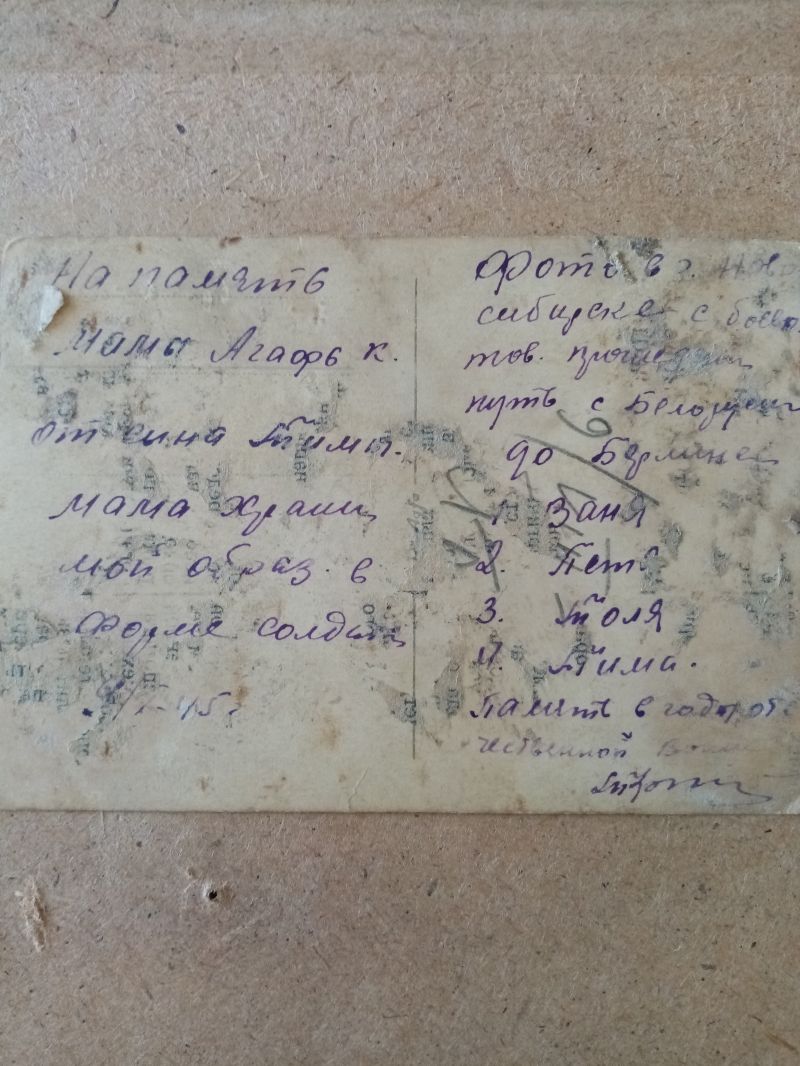 На память
мамы Агафь к.
от сина Тимы.
мама храни
мой образ в
форме солдата
45.
Фото в г. Ново
сибирске с боево
тов. прошедши
путь с Белорусии
до Берлина
1 Ваня
2. Петя
3. Толя
4. Тима.
память в год от
чественной Войны